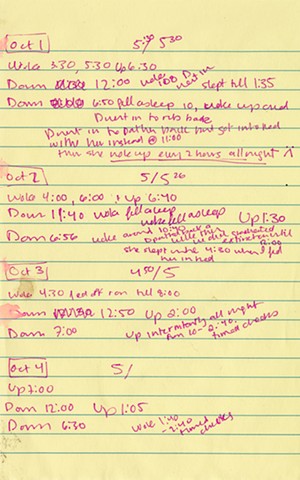 Oct 1 5:30 530
Woke 3:30, 5:30 Up 6:30
Down 12:00 woke 1:00 slept till 1:35
Down 6:50 fell asleep 10, woke up and
Daunt in to rub back
Daunt in to pat her back but got into bed
with her instead @ 11:00
then she woke up every 2 hours all night
Oct 2 5/5 26
Woke 4:00, 6:00 + Up 6:40
Down 11:40 woke fell asleep
woke fell asleep Up 1:30
Down 6:56 woke around 10:40
till
she slept until 4:30 when I fed
her in bed
Oct 3 4 50/5
Woke 4:30 fed off + on till 8:00
Down 12:50 Up 2:00
Down 7:00 Up intermittently all night
from 10 - 2:40. timed checks
Oct 4 5/
Up 7:00
Down 12:00 Up 1:05
Down 6:30 woke 1:40
- 2:40 timed
checks